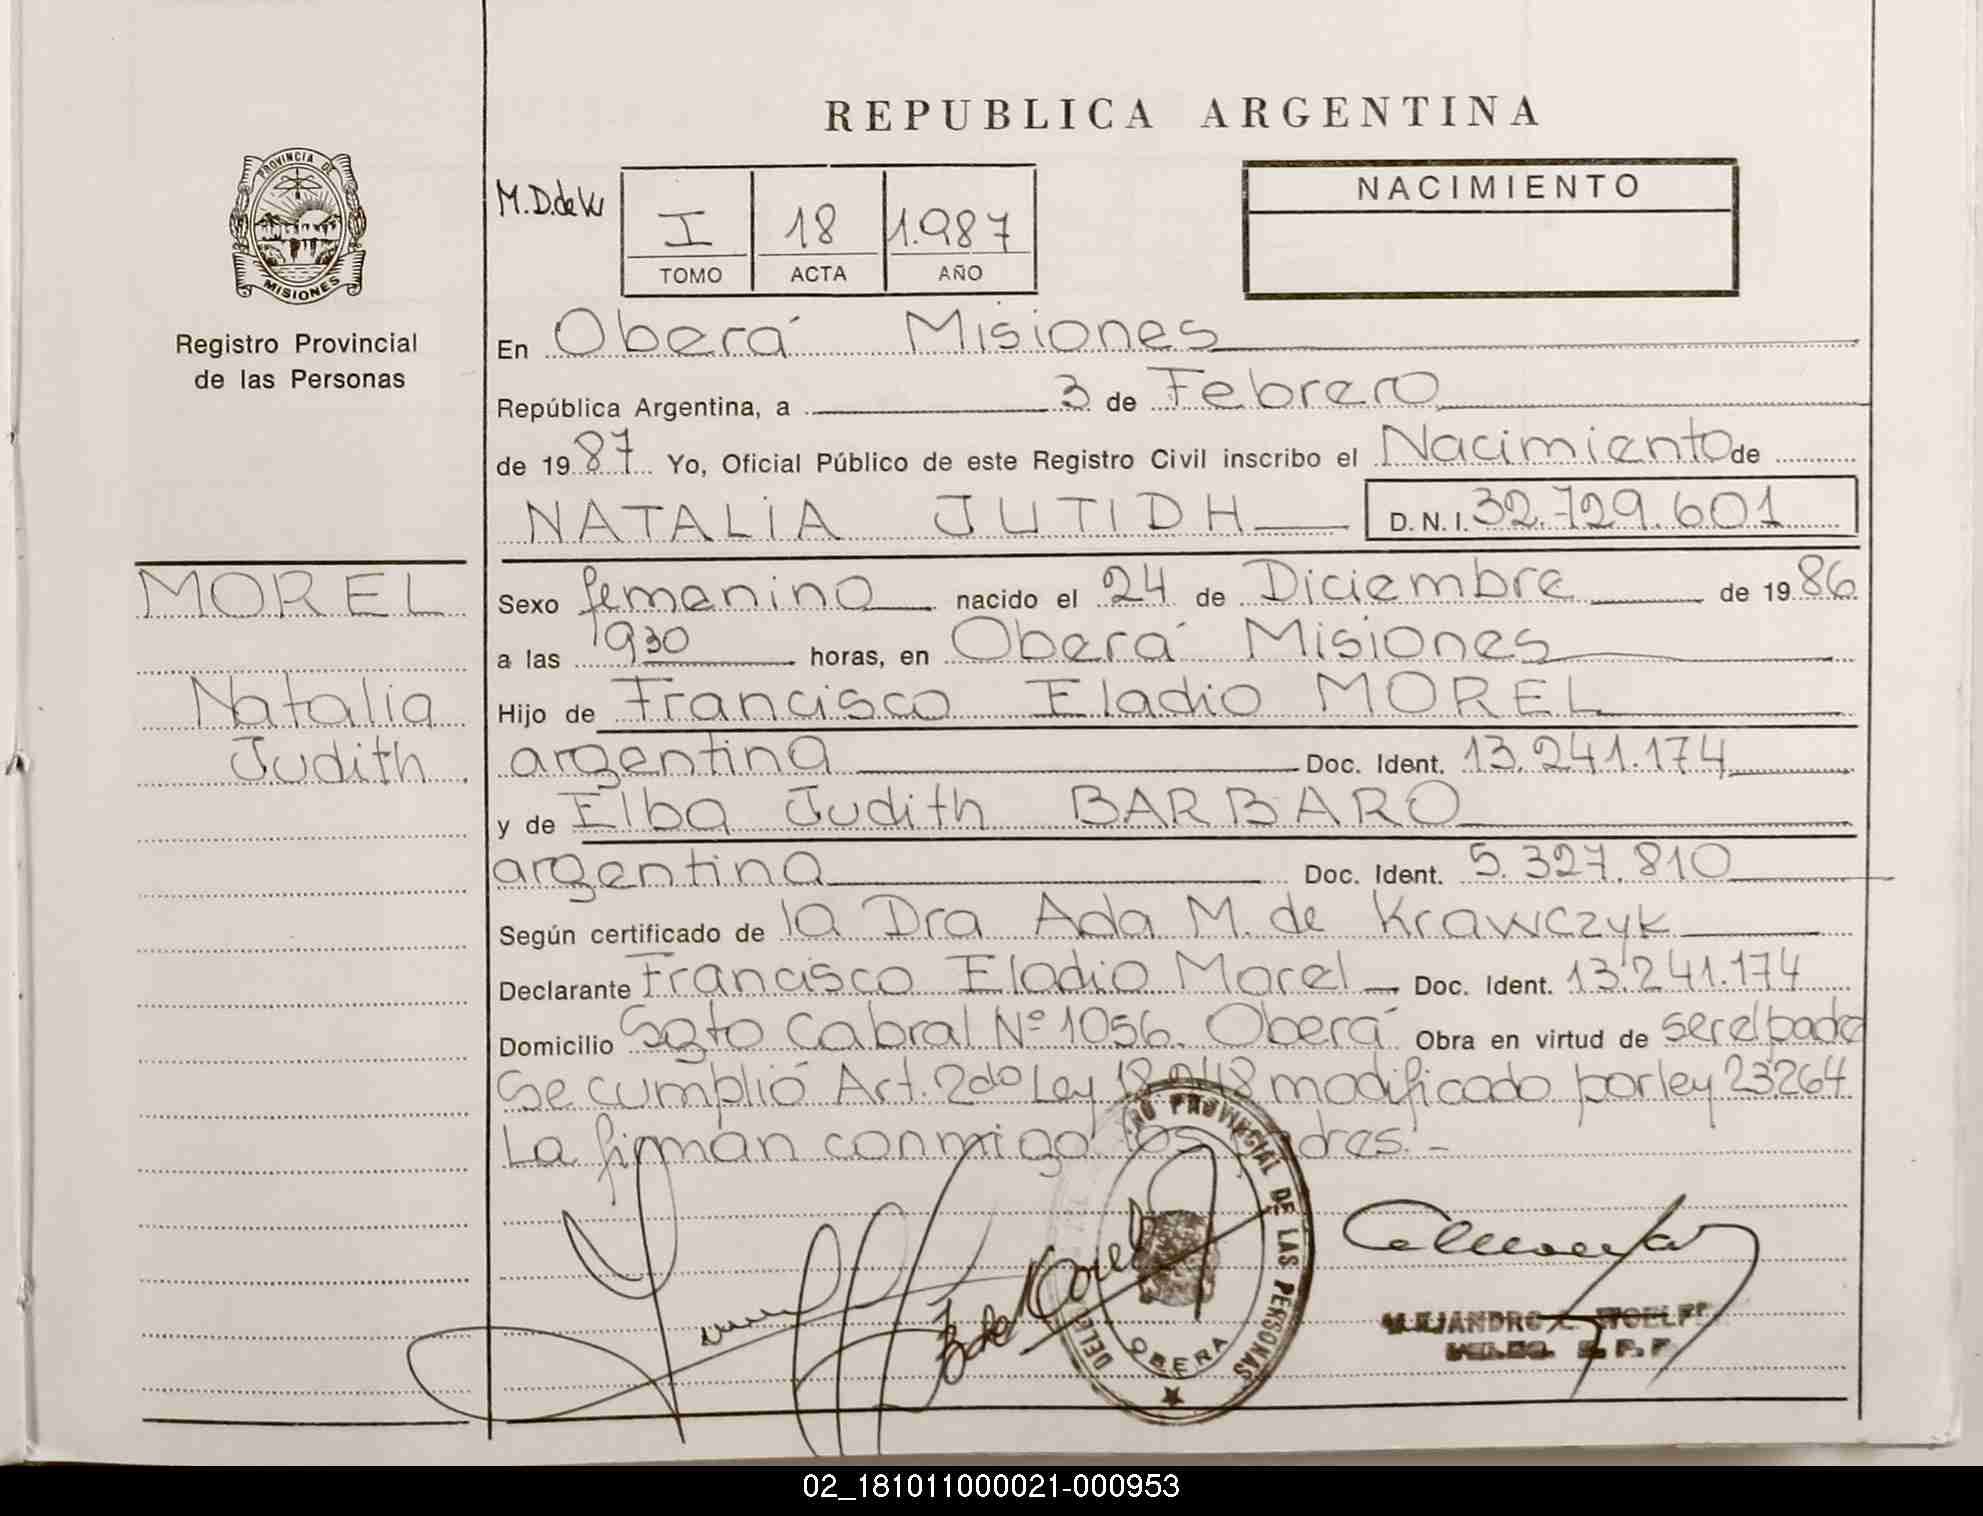 REPUBLICA ARGENTINA
PROVINCIA DE
MISIONES
Registro Provincial
de las Personas
M.D.de W
I 18 1.987
TOMO ACTA AÑO
NACIMIENTO
En Oberá Misiones
República Argentina, a 3 de Febrero
de 19 87 Yo, Oficial Público de este Registro Civil inscribo el Nacimiento de
NATALIA JUTIDH D. N. I. 32.729.601
MOREL
Natalia
Judith
Sexo femenino nacido el 24 de Diciembre de 19 86
a las 1930 horas, en Oberá Misiones
Hijo de Francisco Eladio MOREL
argentina Doc. Ident. 13.241.174
y de Elba Judith BARBARO
argentina Doc. Ident. 5.327.810
Según certificado de la Dra Ada M. de Krawczyk
Declarante Francisco Eladio Morel Doc. Ident. 13.241.174
Domicilio Sgto Cabral Nº 1056. Oberá Obra en virtud de ser el padre
Se cumplió Art. 2do Ley 18.248 modificado por ley 23264
La firman conmigo los padres.-
B de Morel
PROVINCIAL DE LAS PERSONAS
OBERA
ALEJANDRO
02_181011000021-000953